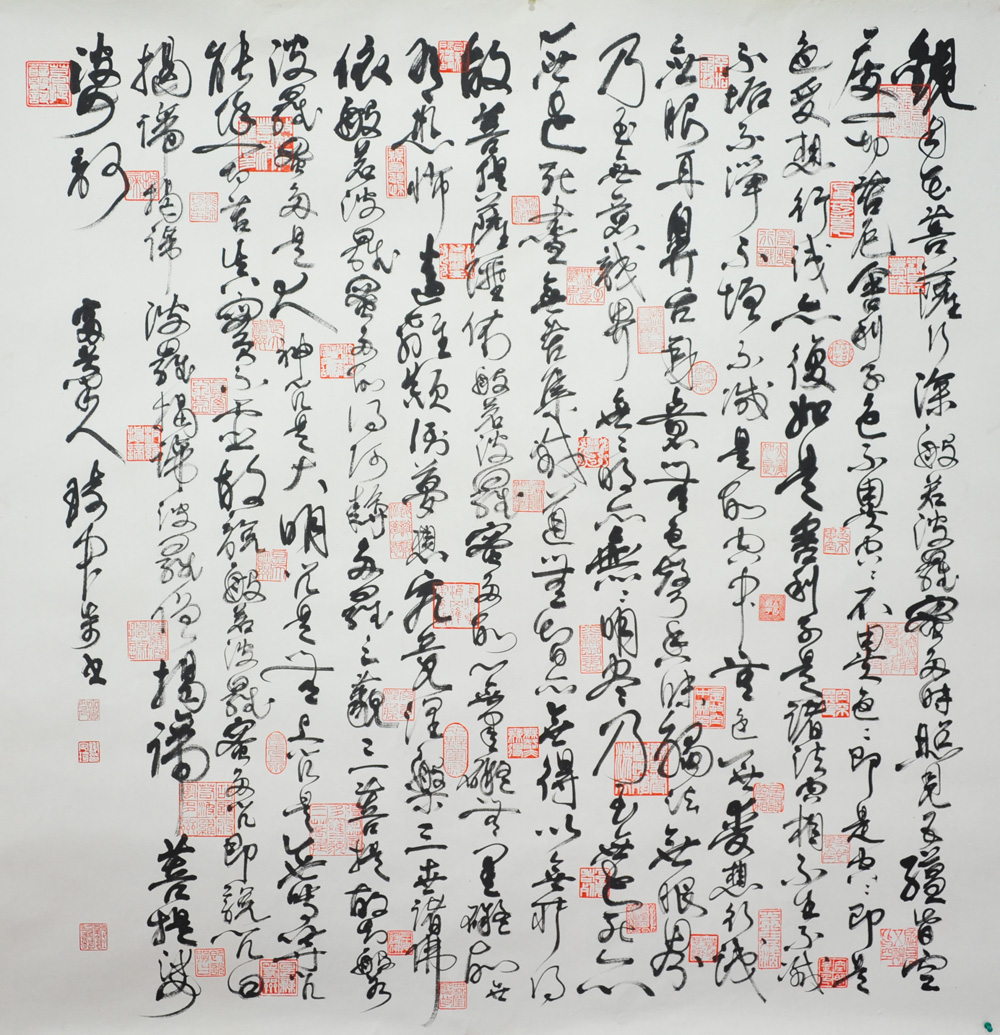 觀自在菩薩行深般若波羅蜜多時照見五蘊皆空
度一切苦厄舍利子色不異空空不異色色即是空空即是
色受想行識亦復如是舍利子是諸法空相不生不滅
不垢不淨不增不減是故空中無色無受想行識
無眼耳鼻舌身意無色聲香味觸法無眼界
乃至無意識界無無明亦無無明盡乃至無老死亦
無老死盡無苦集滅道無智亦無得以無所得
故菩提薩埵依般若波羅蜜多故心無罣礙無罣礙故無
有恐怖遠離顛倒夢想究竟涅槃三世諸佛
依般若波羅蜜多故得阿耨多羅三藐三菩提故知般若
波羅蜜多是大神咒是大明咒是無上咒是無等等咒
能除一切苦真實不虛故說般若波羅蜜多咒即說咒曰
揭諦揭諦波羅揭諦波羅僧揭諦菩提娑
婆訶